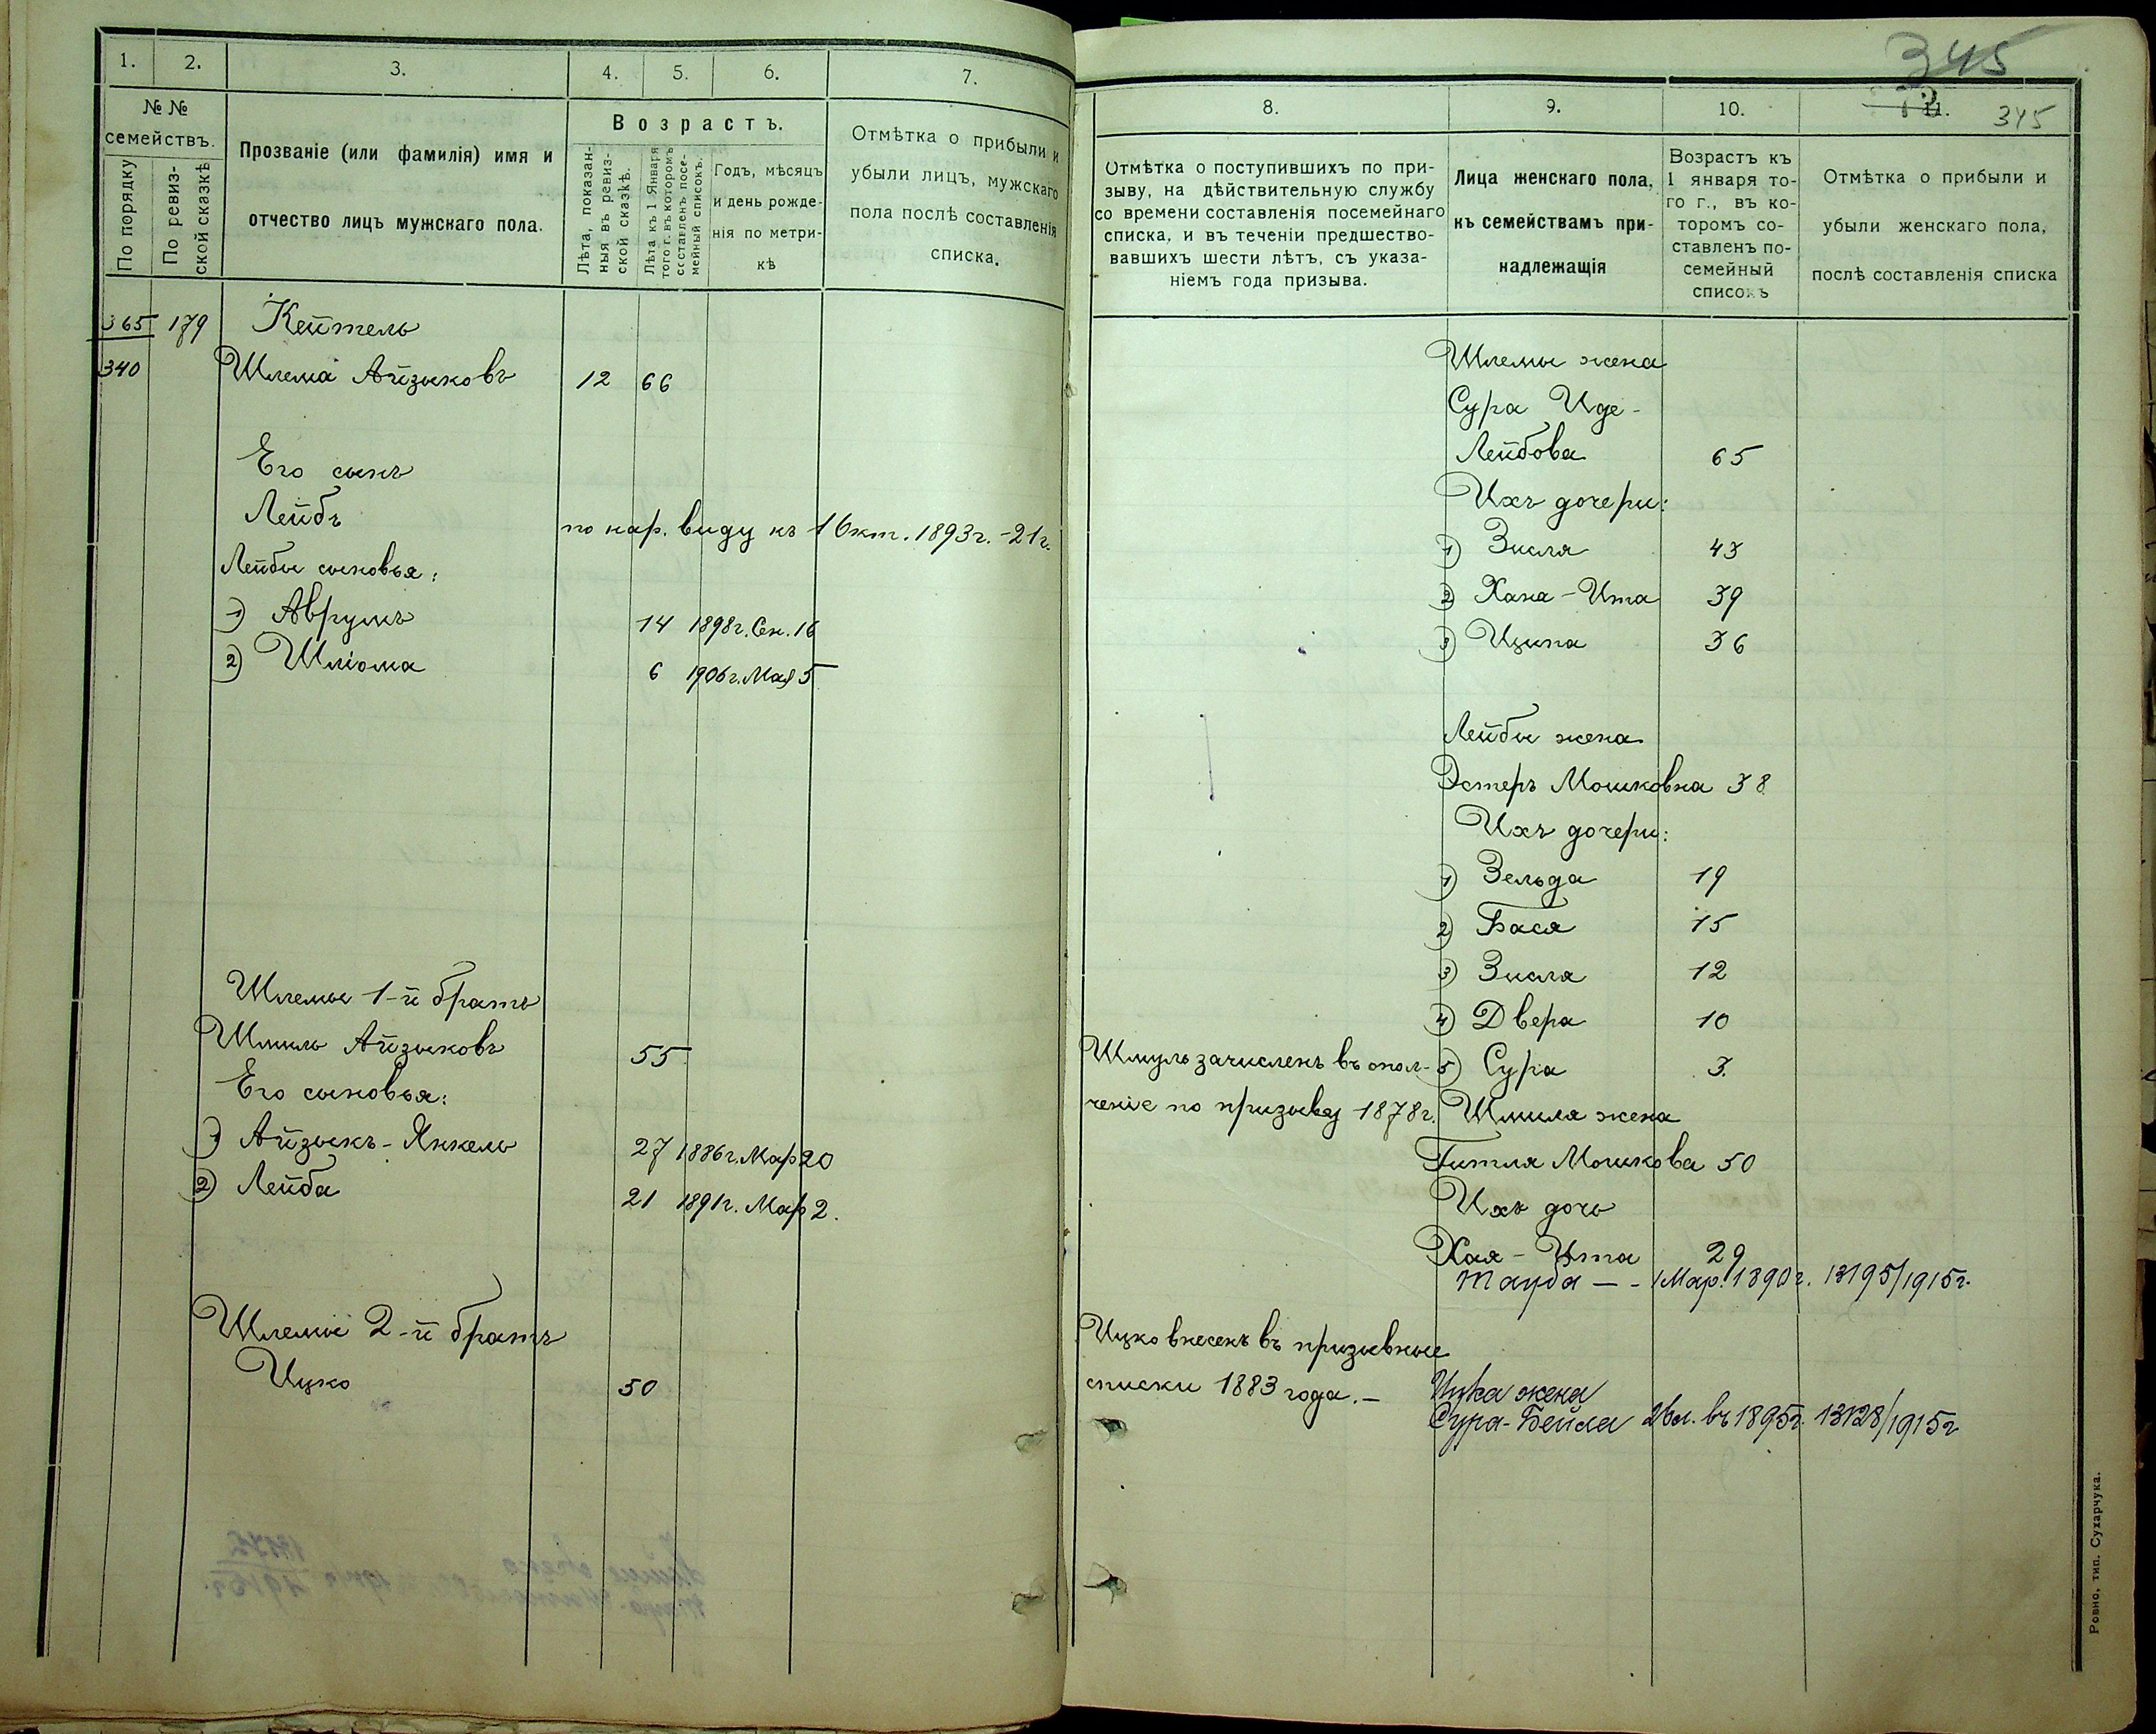 1.
2.
3.
4.
5.
6.
7.
№ №
семействъ.
По порядку
По ревиз-
ской сказкѣ
Прозваніе (или фамилія) имя и
отчество лицъ мужскаго пола.
Возрастъ.
Лѣта, показан-
ныя въ ревиз-
ской сказкѣ.
Лѣта къ 1 Января
того г. въ которомъ
составленъ посе-
мейный списокъ.
Годъ, мѣсяцъ
и день рожде-
нія по метри-
кѣ
Отмѣтка о прибыли и
убыли лицъ, мужскаго
пола послѣ составленія
списка.
365 179 Кейтель
340 Шлема Айзыковъ 12 66
Его сынъ
Лейбъ по нар. виду къ 1 Окт. 1893 г. - 21 г.
Лейбы сыновья:
1) Аврумъ 14 1898 г. Сен. 16
2) Шліома 6 1906 г. Мая 5
Шлемы 1-й братъ
Шмиль Айзыковъ 55
Его сыновья:
1) Айзыкъ-Янкель 27 1886 г. Мар 20
2) Лейба 21 1891 г. Мар 2.
Шлемы 2-й братъ
Ицко 50
345
8.
9.
10.
11.
345
Отмѣтка о поступившихъ по при-
зыву, на дѣйствительную службу
со времени составленія посемейнаго
списка, и въ теченіи предшество-
вавшихъ шести лѣтъ, съ указа-
ніемъ года призыва.
Лица женскаго пола,
къ семействамъ при-
надлежащія
Возрастъ къ
1 января то-
го г., въ ко-
торомъ со-
ставленъ по-
семейный
списокъ
Отмѣтка о прибыли и
убыли женскаго пола,
послѣ составленія списка
Шлемы жена
Сура Иде-
Лейбова 65
Ихъ дочери:
1) Зисля 43
2) Хана-Ита 39
3) Ципа 36
Лейбы жена
Эстеръ Мошковна 38
Ихъ дочери:
1) Зельда 19
2) Бася 15
3) Зисля 12
4) Двера 10
Шмуль зачисленъ въ опол- 5) Сура 3.
ченіе по призыву 1878 г. Шмиля жена
Гитля Мошкова 50
Ихъ дочь
Хая-Ита 29
Тауба — - 1 Мар. 1890 г. 13195/1915 г.
Ицко внесенъ въ призывные
списки 1883 года. — Ицка жена
Сура-Бейла 26 л. въ 1895 г. 13128/1915 г
Ровно, тип. Сухарчука.